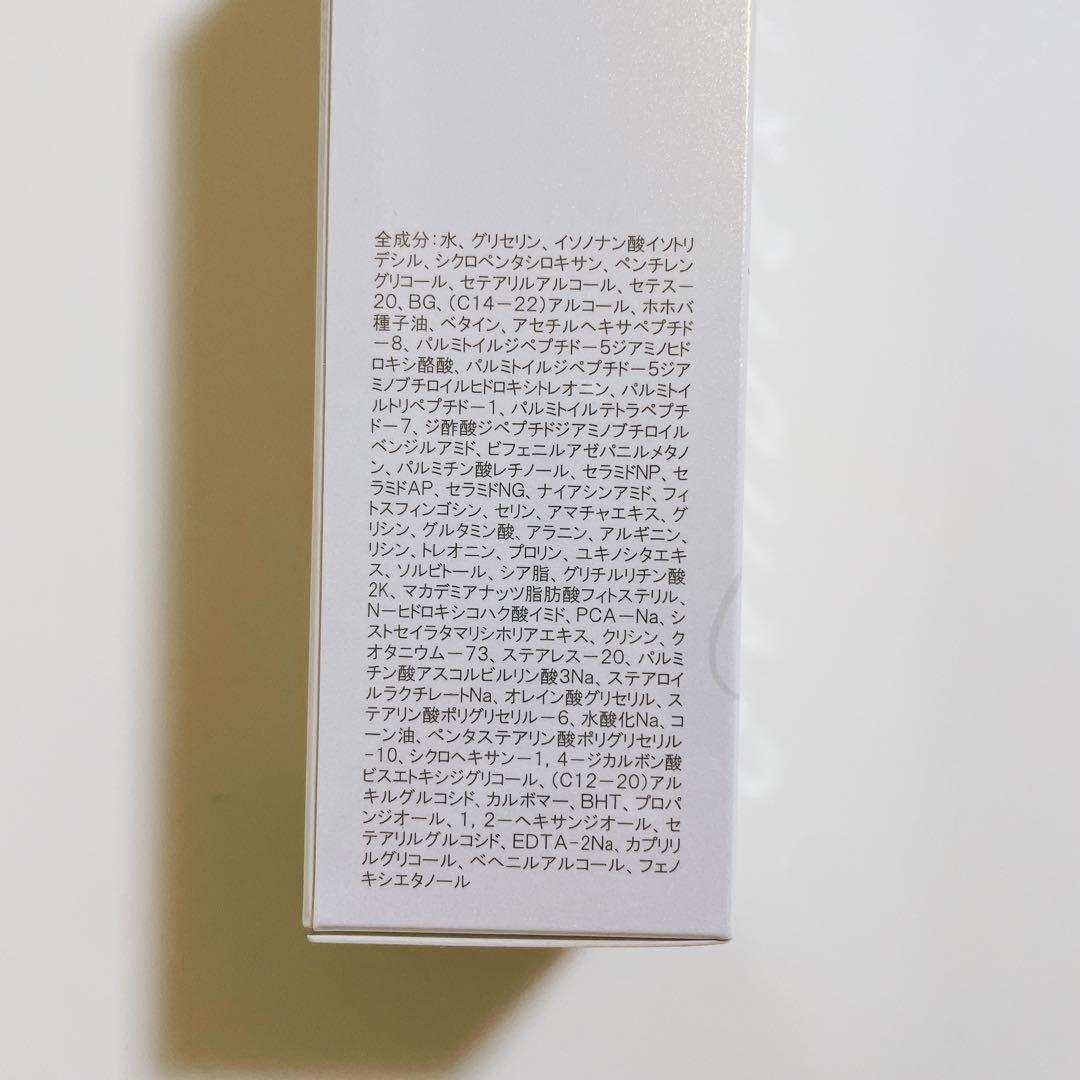 全成分：水、グリセリン、イソノナン酸イソトリ
デシル、シクロペンタシロキサン、ペンチレン
グリコール、セテアリルアルコール、セテス－
20、BG、(C14－22)アルコール、ホホバ
種子油、ベタイン、アセチルヘキサペプチド
－8、パルミトイルジペプチド－5ジアミノヒド
ロキシ酪酸、パルミトイルジペプチド－5ジア
ミノブチロイルヒドロキシトレオニン、パルミトイ
ルトリペプチド－1、パルミトイルテトラペプチ
ド－7、ジ酢酸ジペプチドジアミノブチロイル
ベンジルアミド、ビフェニルアゼパニルメタノ
ン、パルミチン酸レチノール、セラミドNP、セ
ラミドAP、セラミドNG、ナイアシンアミド、フィ
トスフィンゴシン、セリン、アマチャエキス、グ
リシン、グルタミン酸、アラニン、アルギニン、
リシン、トレオニン、プロリン、ユキノシタエキ
ス、ソルビトール、シア脂、グリチルリチン酸
2K、マカデミアナッツ脂肪酸フィトステリル、
N－ヒドロキシコハク酸イミド、PCA－Na、シ
ストセイラタマリシホリアエキス、クリシン、ク
オタニウム－73、ステアレス－20、パルミ
チン酸アスコルビルリン酸3Na、ステアロイ
ルラクチレートNa、オレイン酸グリセリル、ス
テアリン酸ポリグリセリル－6、水酸化Na、コ
ーン油、ペンタステアリン酸ポリグリセリル
-10、シクロヘキサン－1, 4－ジカルボン酸
ビスエトキシジグリコール、(C12－20)アル
キルグルコシド、カルボマー、BHT、プロパ
ンジオール、1, 2－ヘキサンジオール、セ
テアリルグルコシド、EDTA-2Na、カプリリ
ルグリコール、ベヘニルアルコール、フェノ
キシエタノール